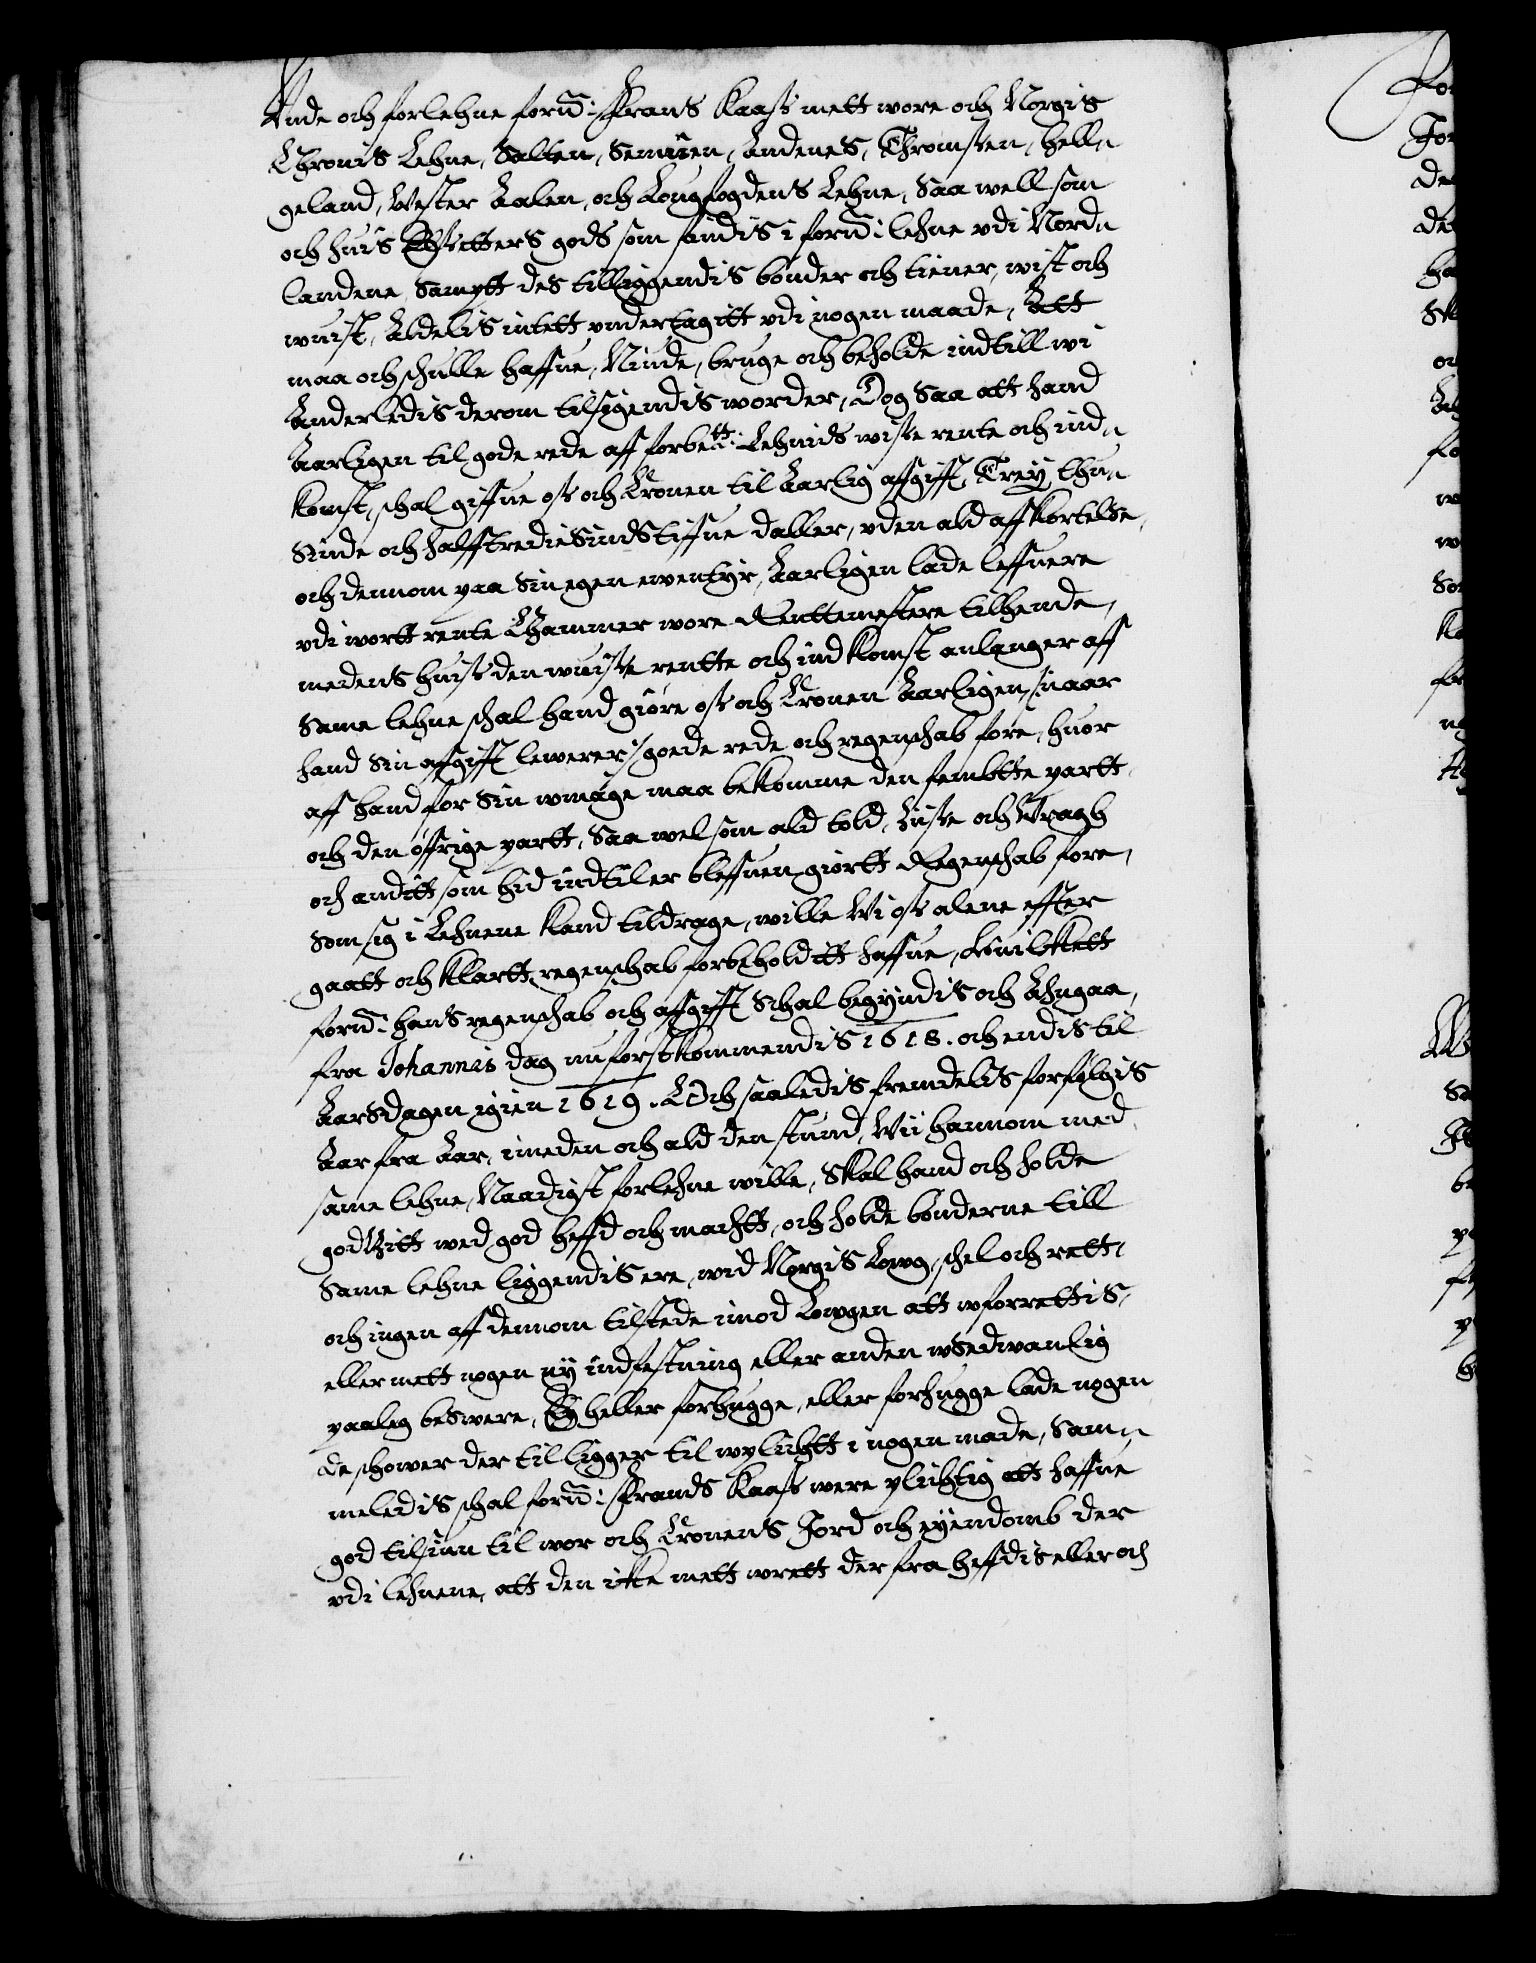 Vnde och forlehne forn: Frans Kaass mett wore och Norgis
Chronis Lehne, Salten, Semnien, Andenes, Thromssen, Hell-
geland, Wester Aalen, och Lougfogdens Lehne, Saa well som
och huis gods som findis i forn: lehne vdi Nord-
landene Samptt des tilliggendis bönder och tiener, wist och
wuist, Aldelis intett vndertagitt vdi nogen maade, Att
maa och schulle haffue, Niude, bruge och beholde indtill wi
Anderledis derom tilsigendis worder, Dog Saa att hand
Aarligen til gode rede aff forbett: Lehnids wisse rente och ind-
komst, schal giffue oss och Cronen til Aarlig affgifft, Treÿ thu-
sinde och halfftredie Sinds tiffue daller, vden ald affkortelse,
och dennom paa Sin egen ewentyr, Aarligen lade leffuere
vdi wortt rente Chammer wore Renttemestere tilhende,
medens huis den wuisse rentte och indkomst anlanger aff
Same lehne schal hand giöre oss och Cronen Aarligen /: naar
hand Sin affgifft leuerer :/ goede rede och regenschab fore, huor
aff hand for Sin wmage maa bekomme den fembtte partt
och den öffrige partt, Saa wel som ald told, Sisse och Wragh
och anditt som hid indtil er bleffuen giörtt Regenschab fore,
Som sig i Lehnene kand tildrage, wille Wi oss alene effter
gaatt och klartt regenschab forbeholditt haffue, huilckett
forn: hans regenschab och affgifft Schal begÿndis och Ahngaa,
fra Johannis dag nu förstkommendis 1618. och endis til
Aarsdagen igien 1619. Och saaledis fremdelis forfölgis
Aar fra Aar, imeden och ald den stund, Wii hannom med
same lehne, Naadigst forlehne wille, Skal hand och holde
godzitt wed god heffd och machtt, och holde bönderne till
Same lehne liggendis ere, wid Norgis Lowg, schel och rett,
och ingen aff dennom tilstede imod Lowgen att wforrettis,
eller mett nogen nÿ indfestning eller anden wSedwanlig
paaleg beswere, Eÿ heller forhugge, eller forhugge lade nogen
de schower der til ligger til wplichtt i nogen made, Sam-
meledis schal forn: Frands Kaass were plichtig att haffue
god tilsiun til wor och Cronens Jord och eÿendomb der
vdi lehnene, att den icke mett wrett der fra heffdis eller och